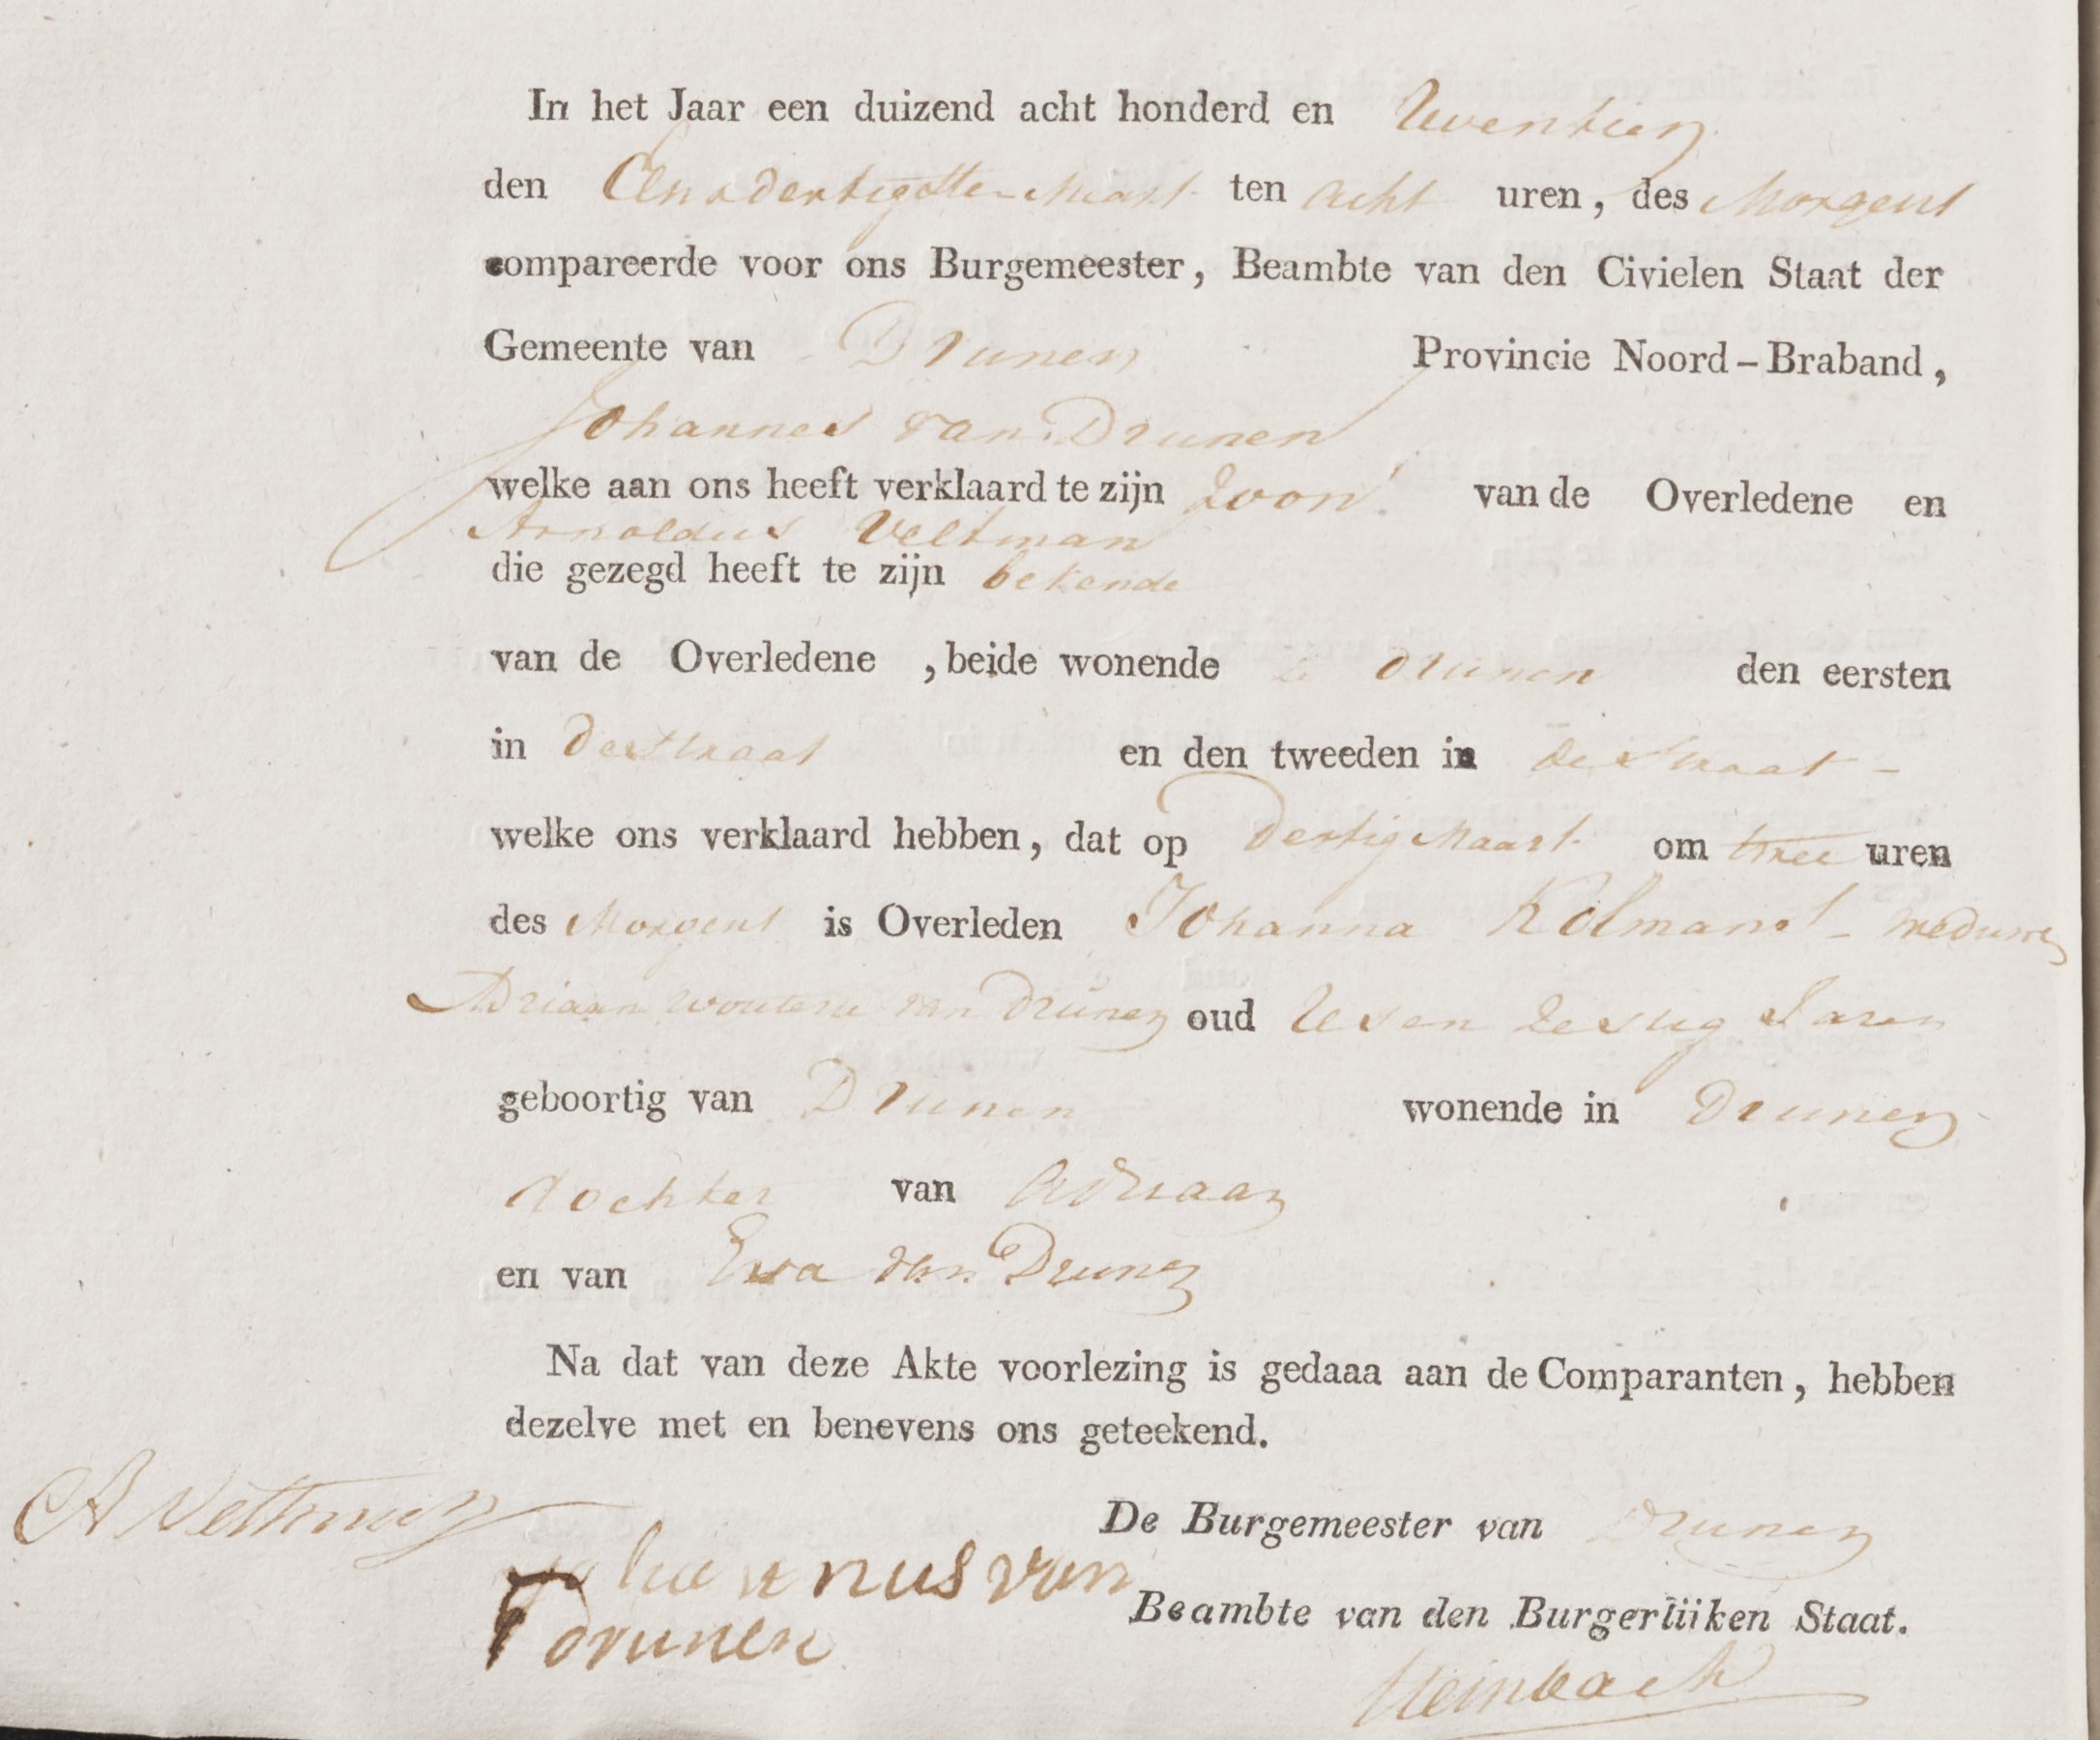 In het Jaar een duizend acht honderd en zeventien
den Een & dertigsten Maart ten acht uren, des Morgens
compareerde voor ons Burgemeester, Beambte van den Civielen Staat der
Gemeente van Drunen Provincie Noord-Braband,
Johannes van Drunen
welke aan ons heeft verklaard te zijn Zoon van de Overledene en
Arnoldus Veltman
die gezegd heeft te zijn bekende
van de Overledene , beide wonende te Drunen den eersten
in de straat en den tweeden in de straat -
welke ons verklaard hebben, dat op Dertig Maart om twee uren
des Morgens is Overleden Johanna Kolmans - weduwe
Adriaan Wouteru van Drunen oud Zes en Zestig Jaren
geboortig van Drunen wonende in Drunen
dochter van Adriaan
en van Eva van Drunen
Na dat van deze Akte voorlezing is gedaaa aan de Comparanten, hebben
dezelve met en benevens ons geteekend.
A Veltman
De Burgemeester van Drunen
Johannus van
Beambte van den Burgerliiken Staat.
drunen